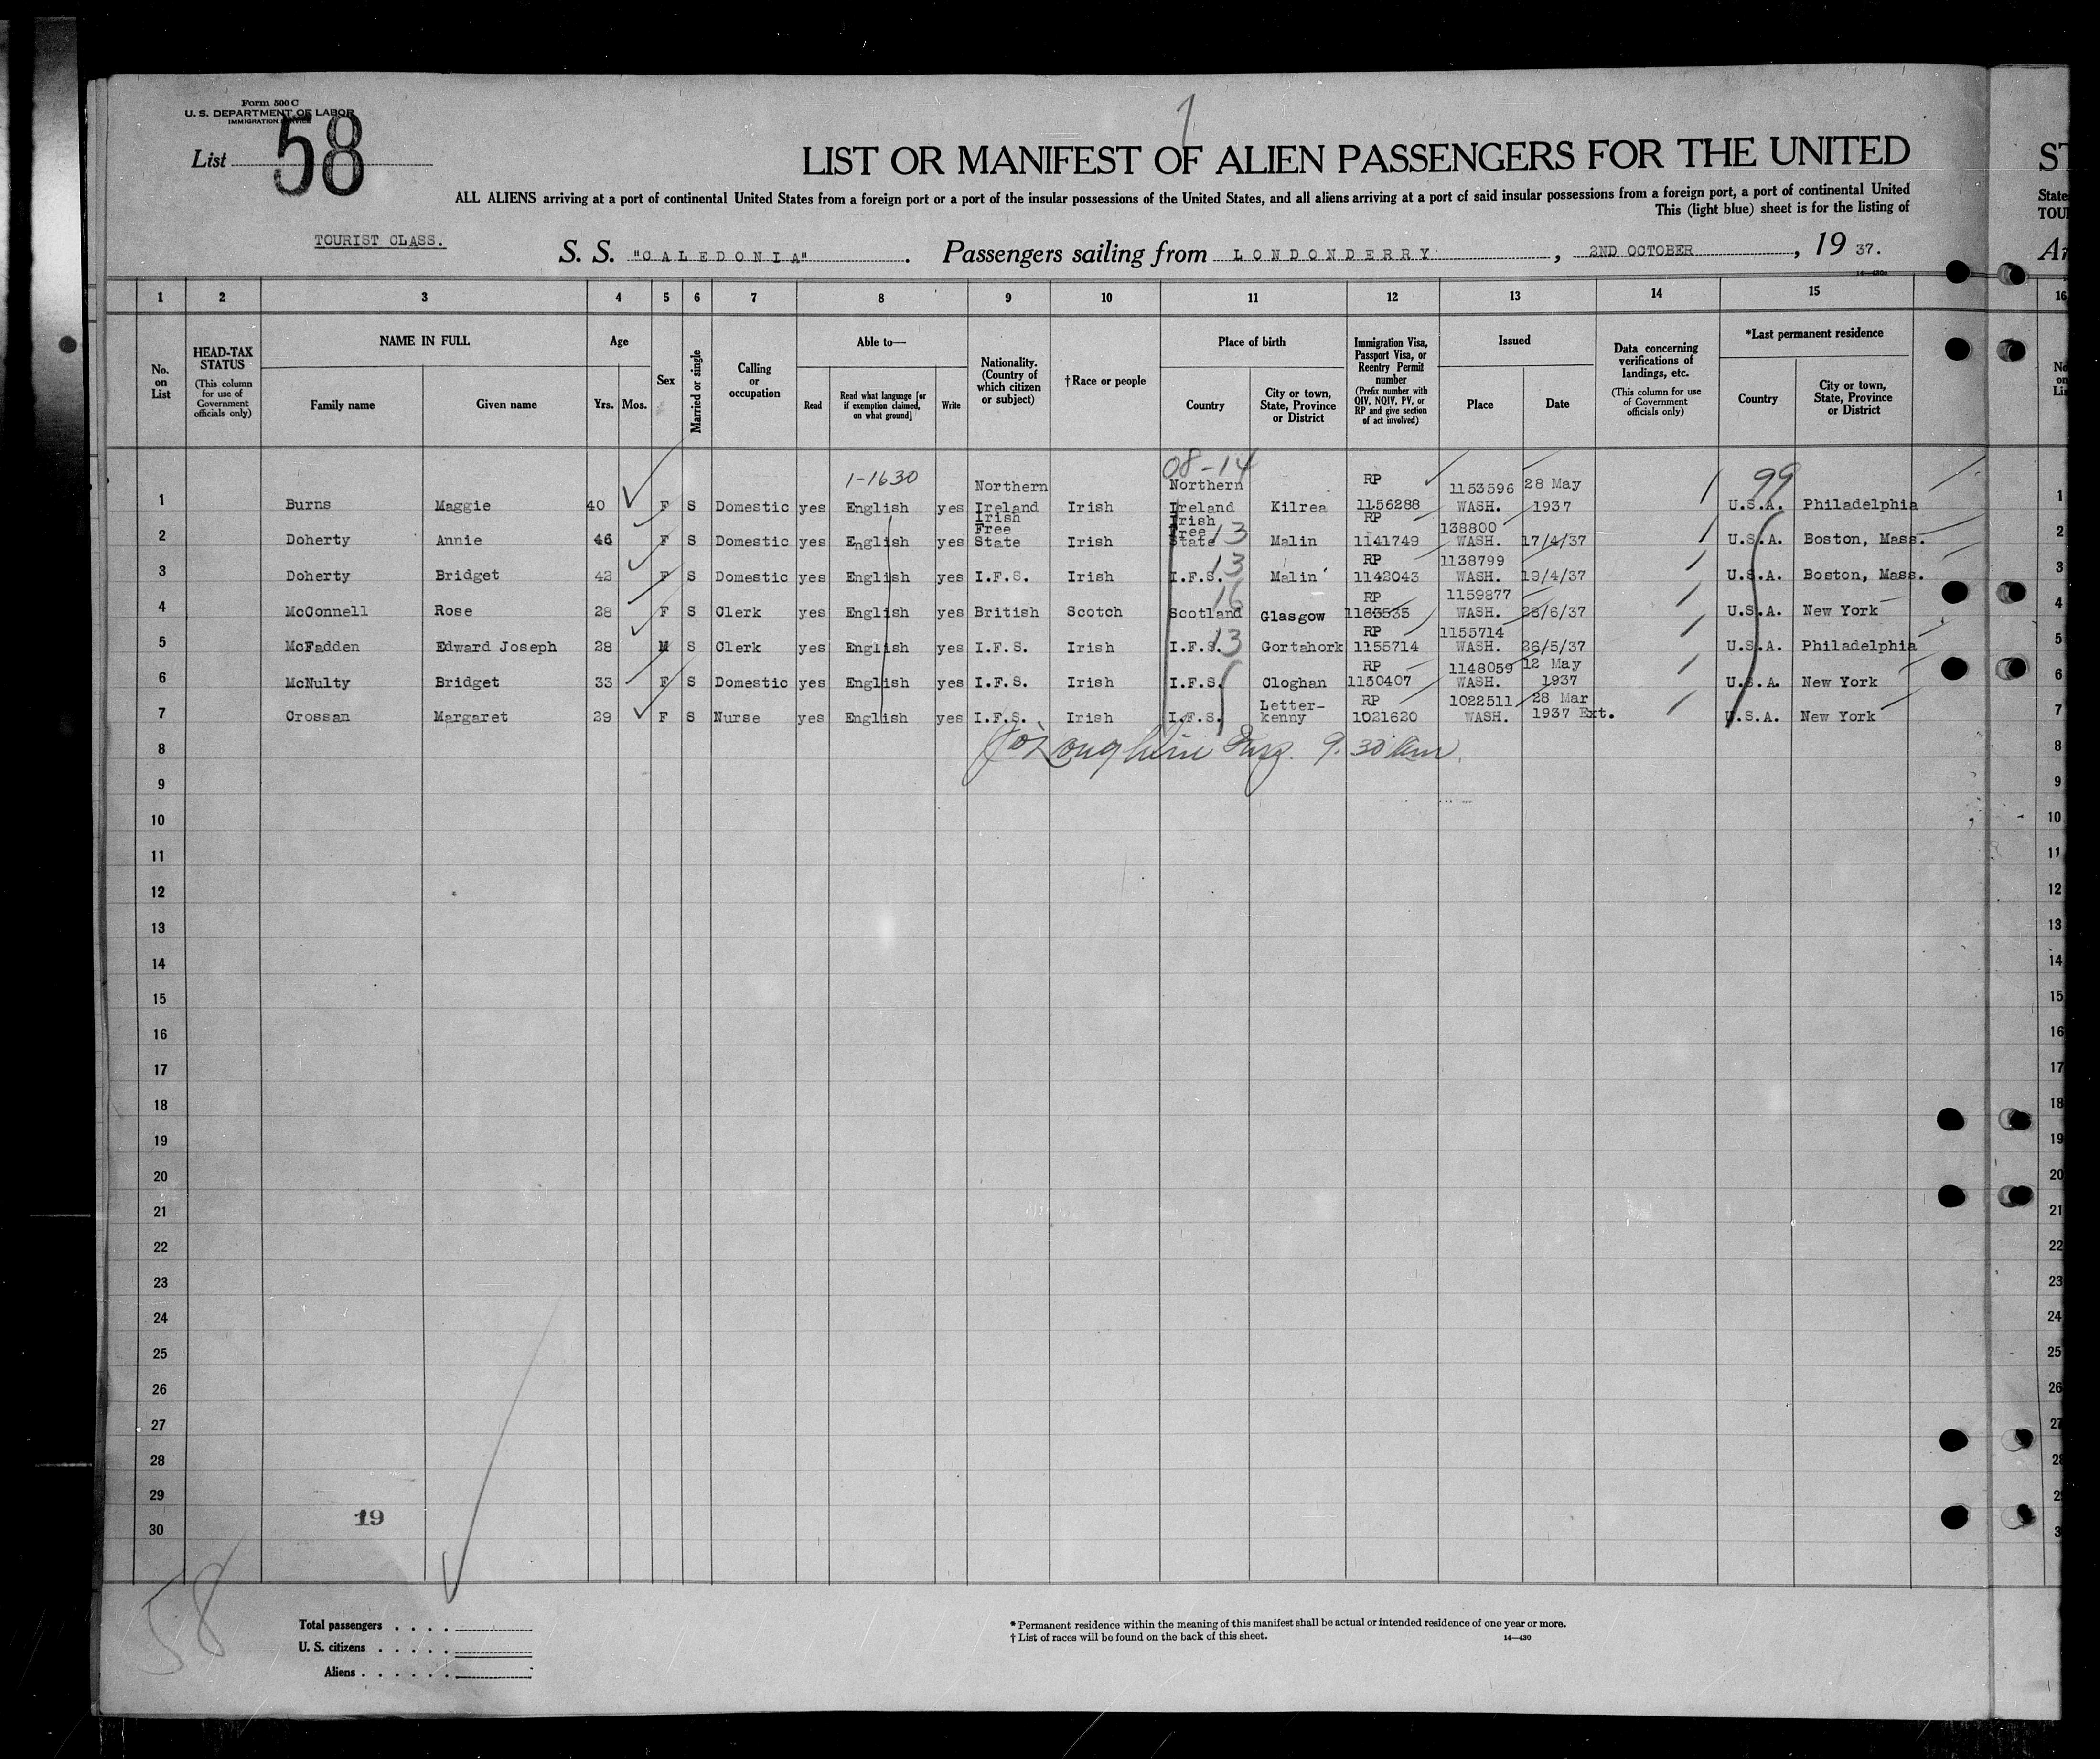 Form 500 C
U. S. DEPARTMENT OF LABOR
IMMIGRATION
List 58
LIST OR MANIFEST OF ALIEN PASSENGERS FOR THE UNITED
ST
ALL ALIENS arriving at a port of continental United States from a foreign port or a port of the insular possessions of the United States, and all aliens arriving at a port of said insular possessions from a foreign port, a port of continental United
State
This (light blue) sheet is for the listing of
TOU
TOURIST CLASS.
S. S. "CALEDONIA". Passengers sailing from LONDONDERRY, 2ND OCTOBER, 19 37.
14—430a
1 2 3 4 5 6 7 8 9 10 11 12 13 14 15 16
No. on List
HEAD-TAX STATUS (This column for use of Government officials only)
NAME IN FULL
Family name
Given name
Age
Yrs. Mos.
Sex
Married or single
Calling or occupation
Able to—
Read
Read what language [or if exemption claimed, on what ground]
Write
Nationality. (Country of which citizen or subject)
†Race or people
Place of birth
Country
City or town, State, Province or District
Immigration Visa, Passport Visa, or Reentry Permit number (Prefix number with QIV, NQIV, PV, or RP and give section of act involved)
Issued
Place
Date
Data concerning verifications of landings, etc. (This column for use of Government officials only)
*Last permanent residence
Country
City or town, State, Province or District
1-1630 08-14 99
1 Burns Maggie 40 F S Domestic yes English yes Northern Ireland Irish Northern Ireland Kilrea RP 1156288 1153596 WASH. 28 May 1937 U.S.A. Philadelphia 1
2 Doherty Annie 46 F S Domestic yes English yes Irish Free State Irish Irish Free State 13 Malin RP 1141749 138800 WASH. 17/4/37 U.S.A. Boston, Mass. 2
3 Doherty Bridget 42 F S Domestic yes English yes I.F.S. Irish I.F.S. 13 Malin RP 1142043 1138799 WASH. 19/4/37 U.S.A. Boston, Mass. 3
4 McConnell Rose 28 F S Clerk yes English yes British Scotch Scotland 16 Glasgow RP 1163535 1159877 WASH. 28/6/37 U.S.A. New York 4
5 McFadden Edward Joseph 28 M S Clerk yes English yes I.F.S. Irish I.F.S. 13 Gortahork RP 1155714 1155714 WASH. 26/5/37 U.S.A. Philadelphia 5
6 McNulty Bridget 33 F S Domestic yes English yes I.F.S. Irish I.F.S. Cloghan RP 1150407 1148059 WASH. 12 May 1937 U.S.A. New York 6
7 Crossan Margaret 29 F S Nurse yes English yes I.F.S. Irish I.F.S. Letter-kenny RP 1021620 1022511 WASH. 28 Mar 1937 Ext. U.S.A. New York 7
8 9.30 am 8
9 9
10 10
11 11
12 12
13 13
14 14
15 15
16 16
17 17
18 18
19 19
20 20
21 21
22 22
23 23
24 24
25 25
26 26
27 27
28 28
29
19
30
58
Total passengers
U. S. citizens
Aliens
* Permanent residence within the meaning of this manifest shall be actual or intended residence of one year or more.
† List of races will be found on the back of this sheet.
14—430